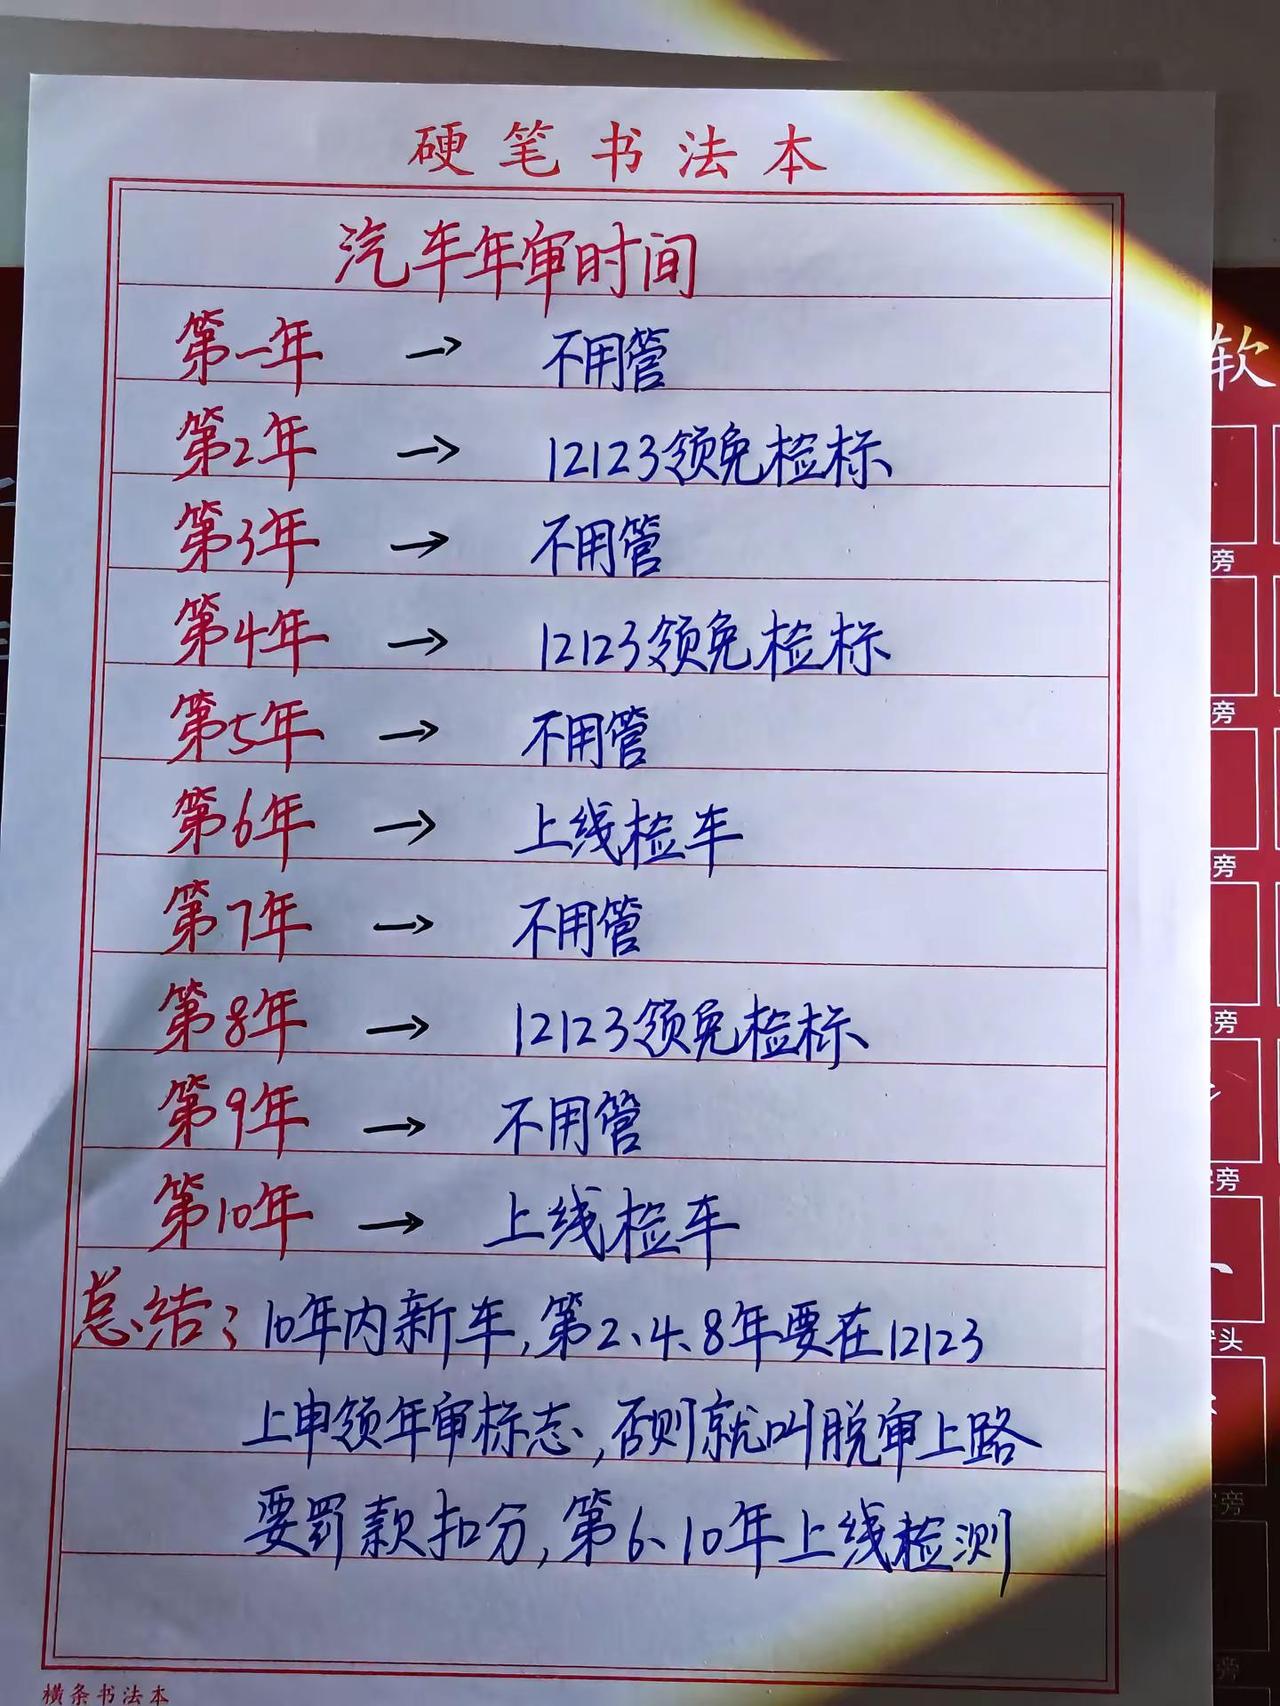 硬笔书法本
汽车年审时间
第一年 → 不用管
第2年 → 12123领免检标
第3年 → 不用管
第4年 → 12123领免检标
第5年 → 不用管
第6年 → 上线检车
第7年 → 不用管
第8年 → 12123领免检标
第9年 → 不用管
第10年 → 上线检车
总结：10年内新车，第2、4、8年要在12123
上申领年审标志，否则就叫脱审上路
要罚款扣分，第6、10年上线检测
横条书法本
软
旁
旁
旁
旁
旁
头
旁
旁